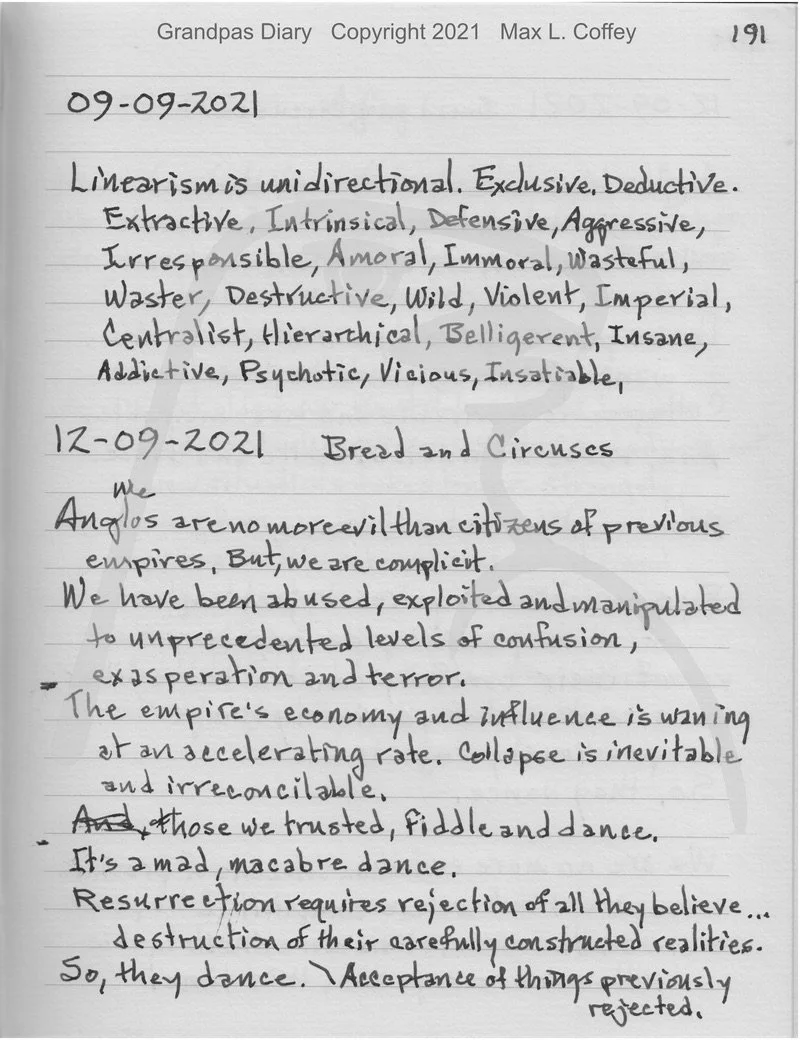 Grandpas Diary Copyright 2021 Max L. Coffey 191
09-09-2021
Linearism is unidirectional. Exclusive. Deductive.
Extractive, Intrinsical, Defensive, Aggressive,
Irresponsible, Amoral, Immoral, Wasteful,
Waster, Destructive, Wild, Violent, Imperial,
Centralist, Hierarchical, Belligerent, Insane,
Addictive, Psychotic, Vicious, Insatiable,
12-09-2021 Bread and Circuses
We
Anglos are no more evil than citizens of previous
empires, But, we are complicit.
We have been abused, exploited and manipulated
to unprecedented levels of confusion,
exasperation and terror.
The empire's economy and influence is waning
at an accelerating rate. Collapse is inevitable
and irreconcilable.
And, those we trusted, fiddle and dance.
It's a mad, macabre dance.
Resurrection requires rejection of all they believe...
destruction of their carefully constructed realities.
So, they dance. \ Acceptance of things previously
rejected.